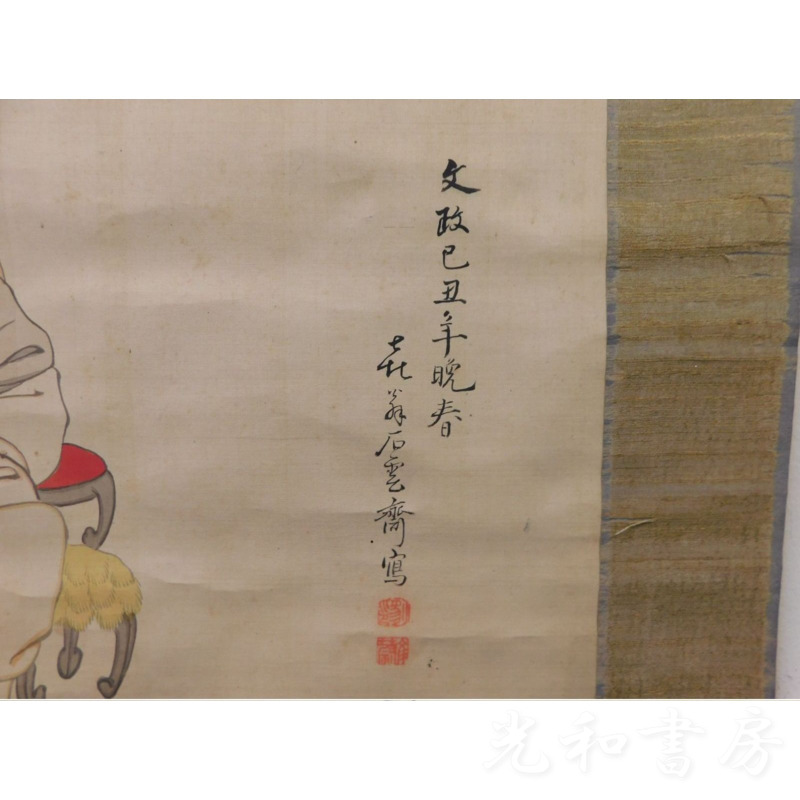 文政己丑年晩春
㐂翁石雲齋寫
光和書房